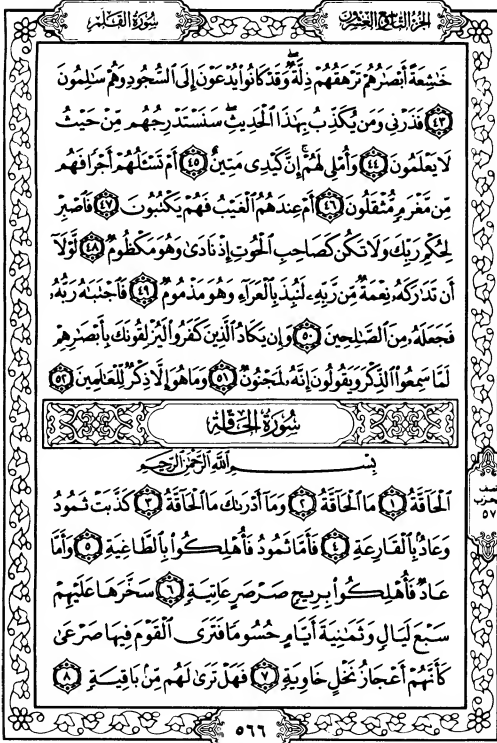 الجزء التاسع والعشرون
سورة القلم
خَٰشِعَةً أَبْصَٰرُهُمْ تَرْهَقُهُمْ ذِلَّةٌ ۖ وَقَدْ كَانُوا۟ يُدْعَوْنَ إِلَى ٱلسُّجُودِ وَهُمْ سَٰلِمُونَ
٤٣ فَذَرْنِى وَمَن يُكَذِّبُ بِهَٰذَا ٱلْحَدِيثِ ۖ سَنَسْتَدْرِجُهُم مِّنْ حَيْثُ
لَا يَعْلَمُونَ ٤٤ وَأُمْلِى لَهُمْ ۚ إِنَّ كَيْدِى مَتِينٌ ٤٥ أَمْ تَسْـَٔلُهُمْ أَجْرًا فَهُم
مِّن مَّغْرَمٍ مُّثْقَلُونَ ٤٦ أَمْ عِندَهُمُ ٱلْغَيْبُ فَهُمْ يَكْتُبُونَ ٤٧ فَٱصْبِرْ
لِحُكْمِ رَبِّكَ وَلَا تَكُن كَصَاحِبِ ٱلْحُوتِ إِذْ نَادَىٰ وَهُوَ مَكْظُومٌ ٤٨ لَّوْلَآ
أَن تَدَٰرَكَهُۥ نِعْمَةٌ مِّن رَّبِّهِۦ لَنُبِذَ بِٱلْعَرَآءِ وَهُوَ مَذْمُومٌ ٤٩ فَٱجْتَبَٰهُ رَبُّهُۥ
فَجَعَلَهُۥ مِنَ ٱلصَّٰلِحِينَ ٥٠ وَإِن يَكَادُ ٱلَّذِينَ كَفَرُوا۟ لَيُزْلِقُونَكَ بِأَبْصَٰرِهِمْ
لَمَّا سَمِعُوا۟ ٱلذِّكْرَ وَيَقُولُونَ إِنَّهُۥ لَمَجْنُونٌ ٥١ وَمَا هُوَ إِلَّا ذِكْرٌ لِّلْعَٰلَمِينَ ٥٢
سورة الحاقة
بِسْمِ ٱللَّهِ ٱلرَّحْمَٰنِ ٱلرَّحِيمِ
ٱلْحَآقَّةُ ١ مَا ٱلْحَآقَّةُ ٢ وَمَآ أَدْرَىٰكَ مَا ٱلْحَآقَّةُ ٣ كَذَّبَتْ ثَمُودُ
وَعَادٌۢ بِٱلْقَارِعَةِ ٤ فَأَمَّا ثَمُودُ فَأُهْلِكُوا۟ بِٱلطَّاغِيَةِ ٥ وَأَمَّا
عَادٌ فَأُهْلِكُوا۟ بِرِيحٍ صَرْصَرٍ عَاتِيَةٍ ٦ سَخَّرَهَا عَلَيْهِمْ
سَبْعَ لَيَالٍ وَثَمَٰنِيَةَ أَيَّامٍ حُسُومًا فَتَرَى ٱلْقَوْمَ فِيهَا صَرْعَىٰ
كَأَنَّهُمْ أَعْجَازُ نَخْلٍ خَاوِيَةٍ ٧ فَهَلْ تَرَىٰ لَهُم مِّنۢ بَاقِيَةٍ ٨
حزب
٥٧
٥٦٦